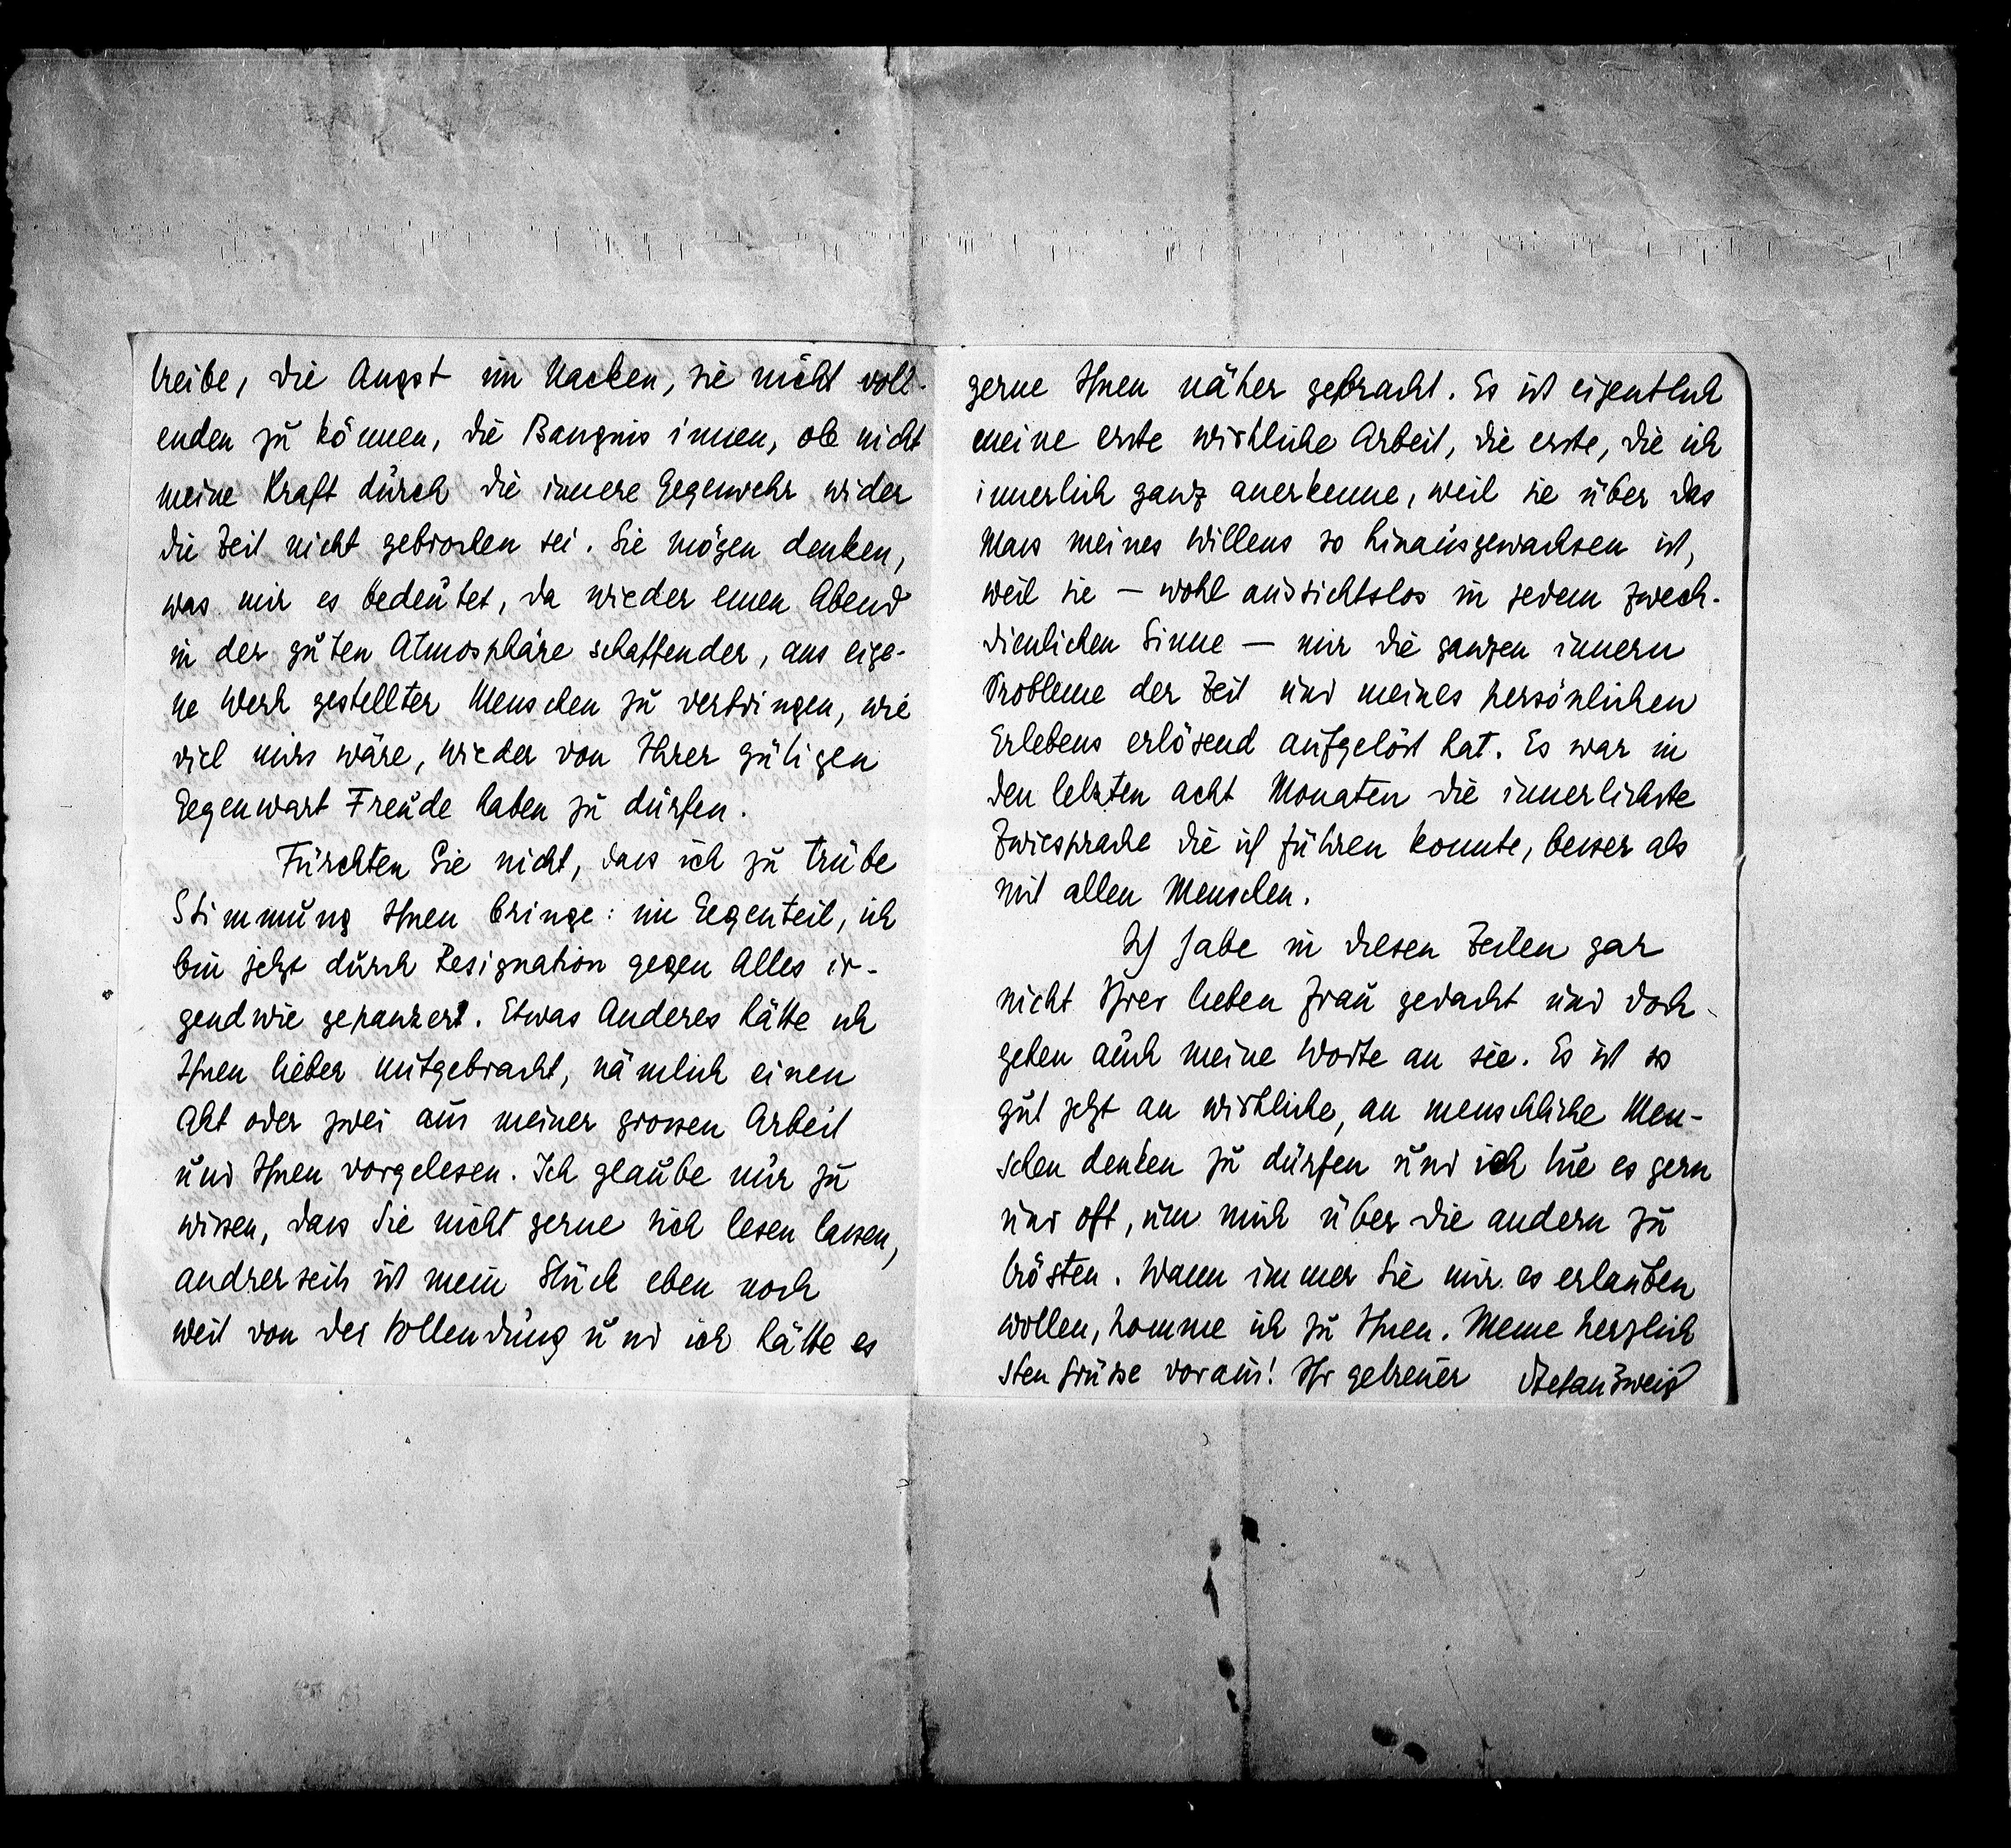 treibe, die Angst im Nacken, sie nicht voll-
enden zu können, die Bangnis innen, ob nicht
meine Kraft durch die innere Gegenwehr wider
die Zeit nicht gebrochen sei. Sie mögen denken,
was mir es bedeutet, da wieder einen Abend
in der guten Atmosphäre schaffender, ans eige-
ne Werk gestellter Menschen zu verbringen, wie
viel mirs wäre, wieder von Ihrer gütigen
Gegenwart Freude haben zu dürfen.
Fürchten Sie nicht, dass ich zu trübe
Stimmung Ihnen bringe: im Gegenteil, ich
bin jetzt durch Resignation gegen Alles ir-
gendwie gepanzert. Etwas Anderes hätte ich
Ihnen lieber mitgebracht, nämlich einen
Akt oder zwei aus meiner grossen Arbeit
und Ihnen vorgelesen. Ich glaube nur zu
wissen, dass Sie nicht gerne sich lesen lassen,
andrerseits ist mein Stück eben noch
weit von der Vollendung und ich hätte es
gerne Ihnen näher gebracht. Es ist eigentlich
meine erste wirkliche Arbeit, die erste, die ich
innerlich ganz anerkenne, weil sie über das
Mass meines Willens so hinausgewachsen ist,
weil sie – wohl aussichtslos in jedem zweck-
dienlichen Sinne – mir die ganzen innern
Probleme der Zeit und meines persönlichen
Erlebens erlösend aufgelöst hat. Es war in
den letzten acht Monaten die innerlichste
Zwiesprache die ich führen konnte, besser als
mit allen Menschen.
Ich habe in diesen Zeilen gar
nicht Ihrer lieben Frau gedacht und doch
gehen auch meine Worte an sie. Es ist so
gut jetzt an wirkliche, an menschliche Men-
schen denken zu dürfen und ich tue es gern
und oft, um mich über die andern zu
trösten. Wann immer Sie mir es erlauben
wollen, komme ich zu Ihnen. Meine herzlich
sten Grüsse voraus! Ihr getreuer Stefan Zweig